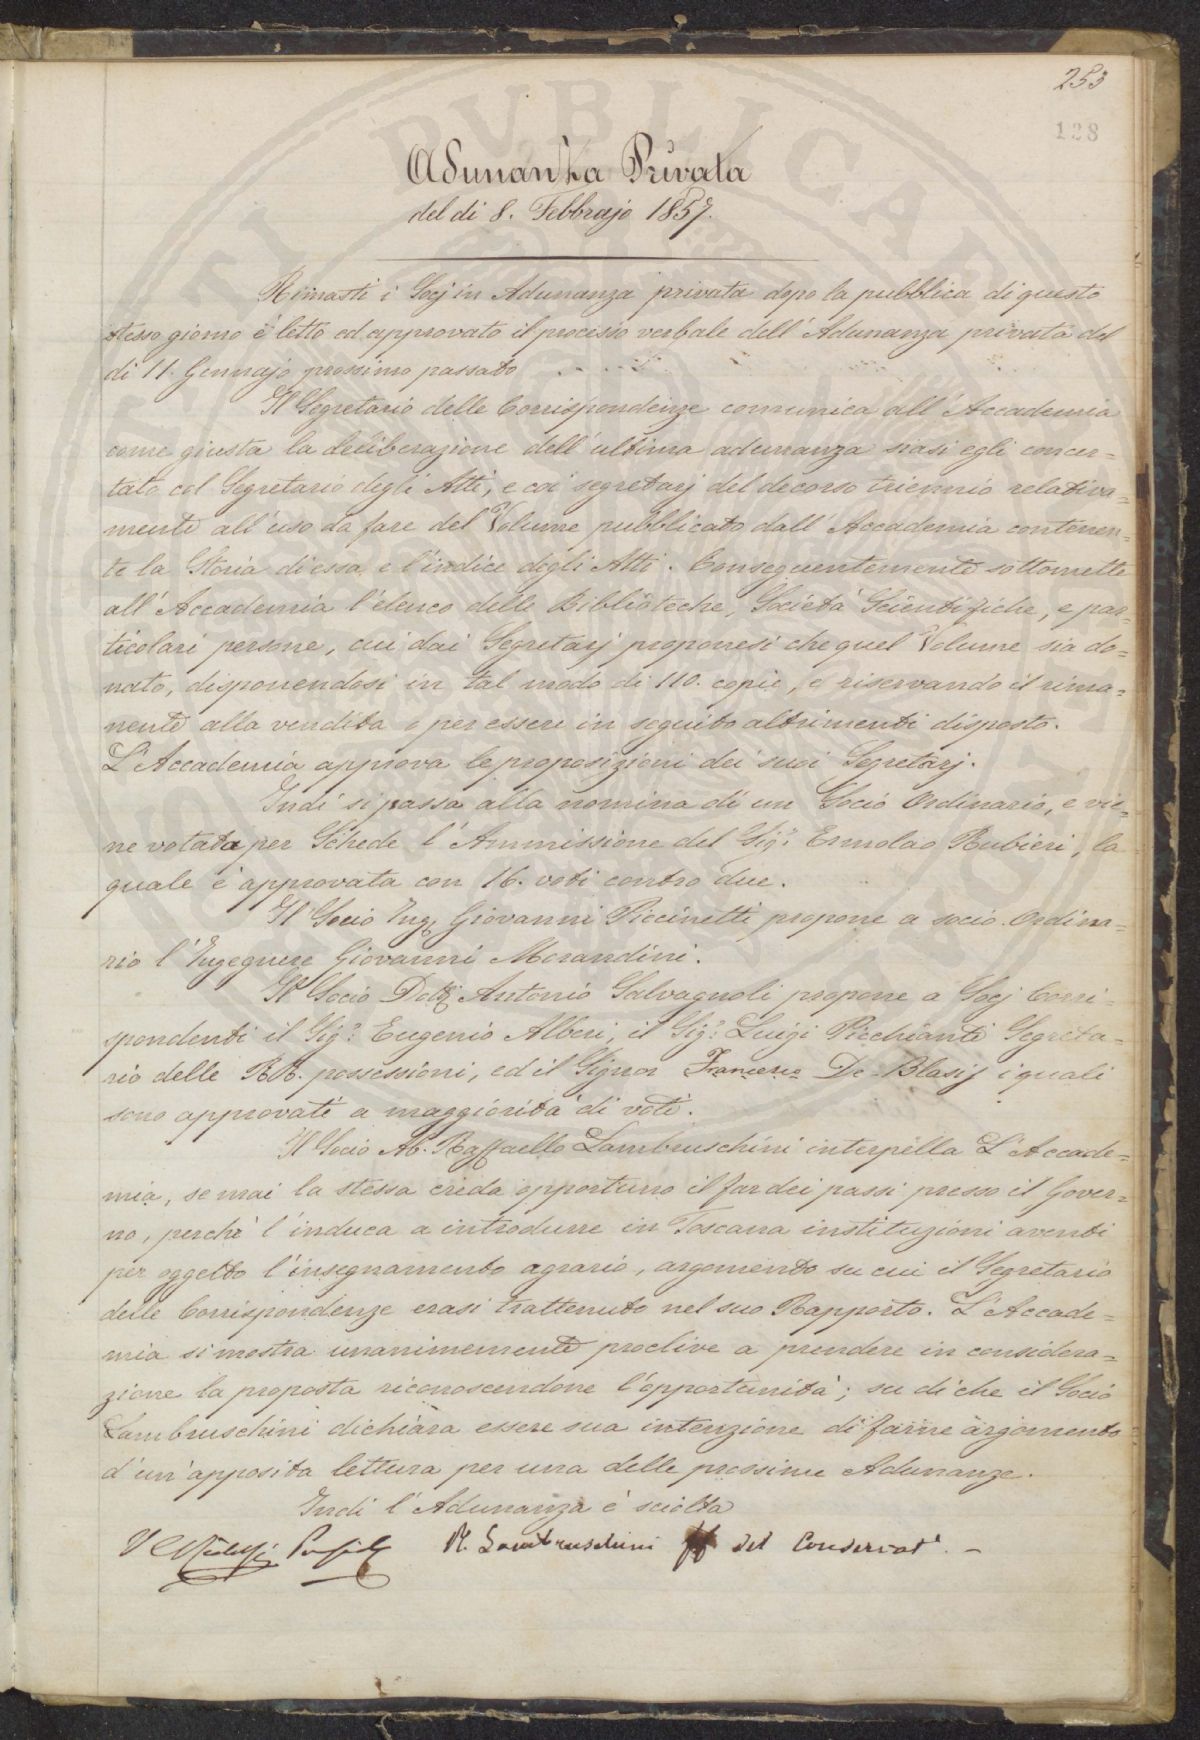 253
128
Adunanza Privata
del dì 8. Febbrajo 1857.
Rimasti i Socj in Adunanza privata dopo la pubblica di questo
stesso giorno è letto ed approvato il processo verbale dell'Adunanza privata del
di 11. Gennajo prossimo passato
Il Segretario delle Corrispondenze comunica all'Accademia
come giusta la deliberazione dell'ultima adunanza siasi egli concer=
tato col Segretario degli Atti, e coi segretarj del decorso triennio relativa=
mente all'uso da fare del Volume pubblicato dall'Accademia contenen=
te la Storia di essa e l'indice degli Atti. Conseguentemente sottomette
all'Accademia l'elenco delle Biblioteche, Società Scientifiche, e par=
ticolari persone, cui dai Segretarj proponesi che quel Volume sia do=
nato, disponendosi in tal modo di 110. copie, e riservando il rima=
nente alla vendita o per essere in seguito altrimenti disposto.
L'Accademia approva le proposizioni dei suoi Segretarj.
Indi si passa alla nomina di un Socio Ordinario, e vie=
ne votata per Schede l'Ammissione del Sig.r Ermolao Rubieri, la
quale è approvata con 16. voti contro due.
Il Socio Ing. Giovanni Piccinetti propone a socio Ordina=
rio l'Ingegnere Giovanni Morandini.
Il Socio Dott. Antonio Salvagnoli propone a Socj Corri=
spondenti il Sig.r Eugenio Alberi, il Sig.r Luigi Picchianti Segreta=
rio delle RR. possessioni, ed il Signor Francesco De-Blasij i quali
sono approvati a maggiorità di voti.
Il Socio Ab. Raffaello Lambruschini interpella L'Accade=
mia, se mai la stessa creda opportuno il far dei passi presso il Gover=
no, perchè l'induca a introdurre in Toscana instituzioni aventi
per oggetto l'insegnamento agrario, argomento su cui il Segretario
delle Corrispondenze erasi trattenuto nel suo Rapporto. L'Accade=
mia si mostra unanimemente proclive a prendere in considera=
zione la proposta riconoscendone l'opportunità; su di che il Socio
Lambruschini dichiara essere sua intenzione di farne argomento
d'un'apposita lettura per una delle prossime Adunanze.
Indi l'Adunanza è sciolta
R. Lambruschini ff del Conservat.